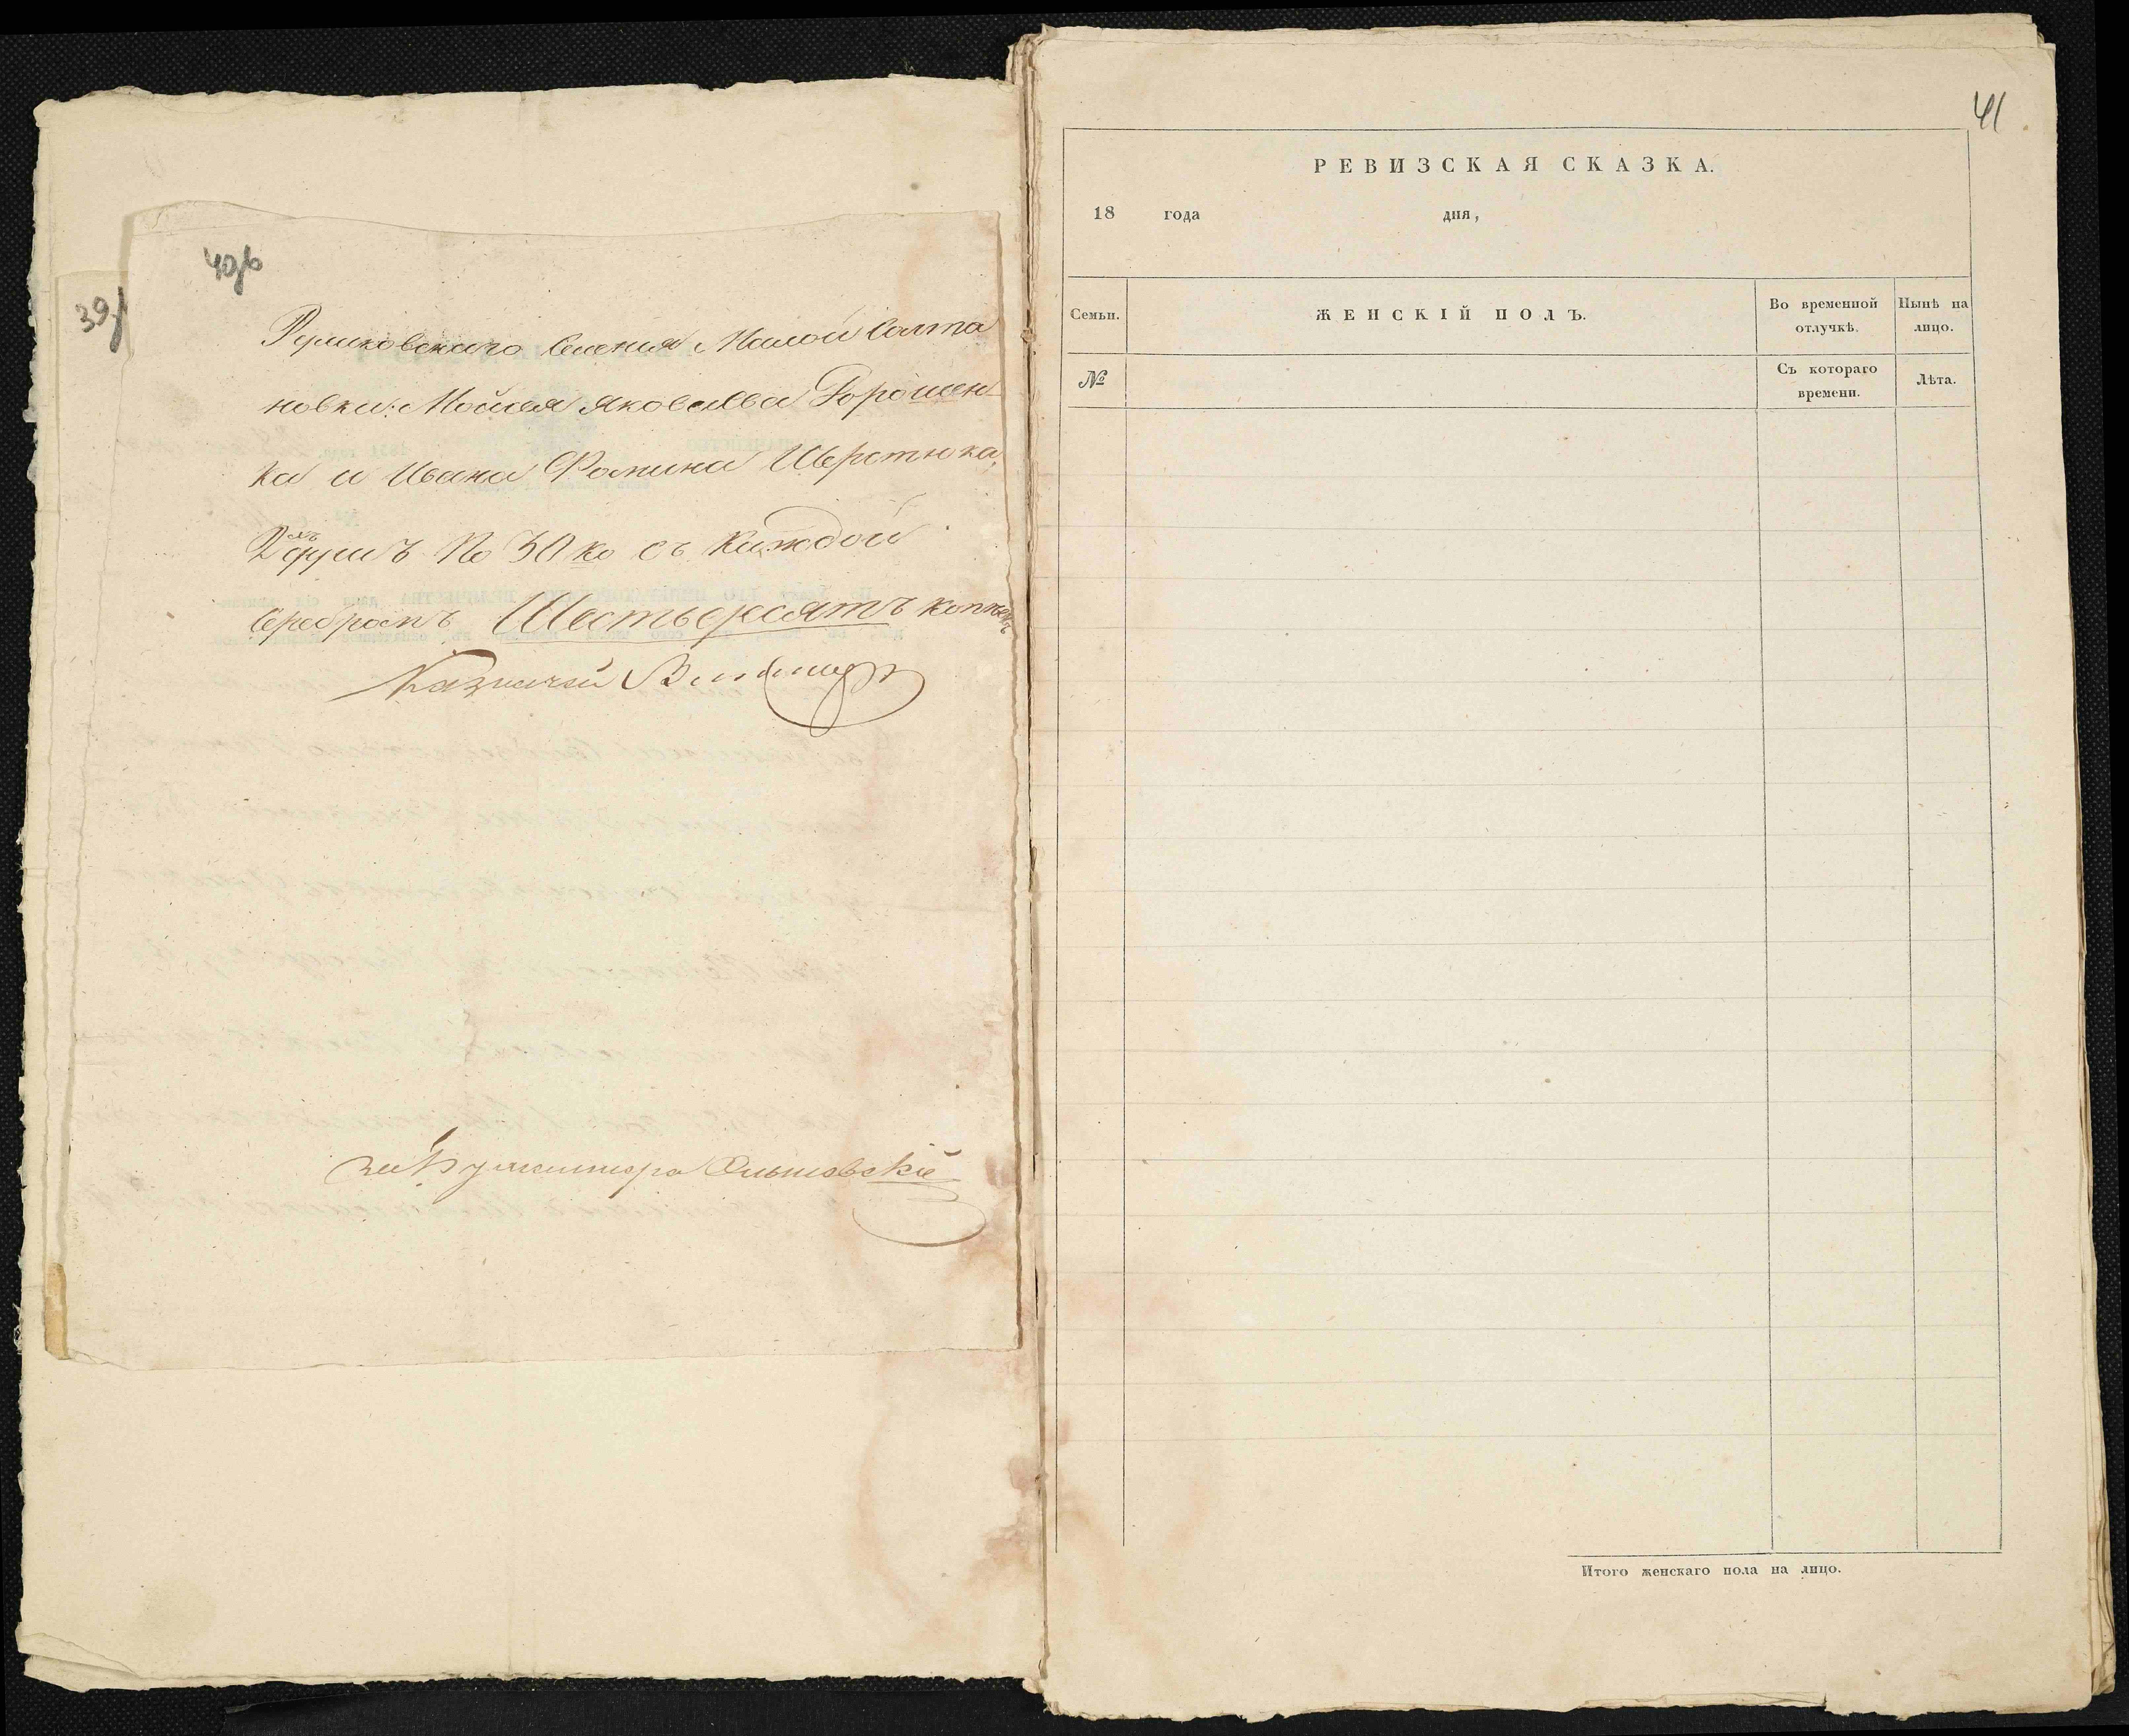 40об
39/
Руликовскаго Селенія Малой Салта
новки: Мойсея Яковлева Горошен
ка и Ивана Фомина Шерстюка,
2хъ душъ По 30 ко съ каждой
Серебромъ Шестьдесятъ копѣекъ
Казначей
за Бухгалтера Ольшевскій
41
РЕВИЗСКАЯ СКАЗКА.
18 года дня,
Семьи.
ЖЕНСКІЙ ПОЛЪ.
Во временной отлучкѣ.
Нынѣ на лицо.
№
Съ котораго времени.
Лѣта.
Итого женскаго пола на лицо.